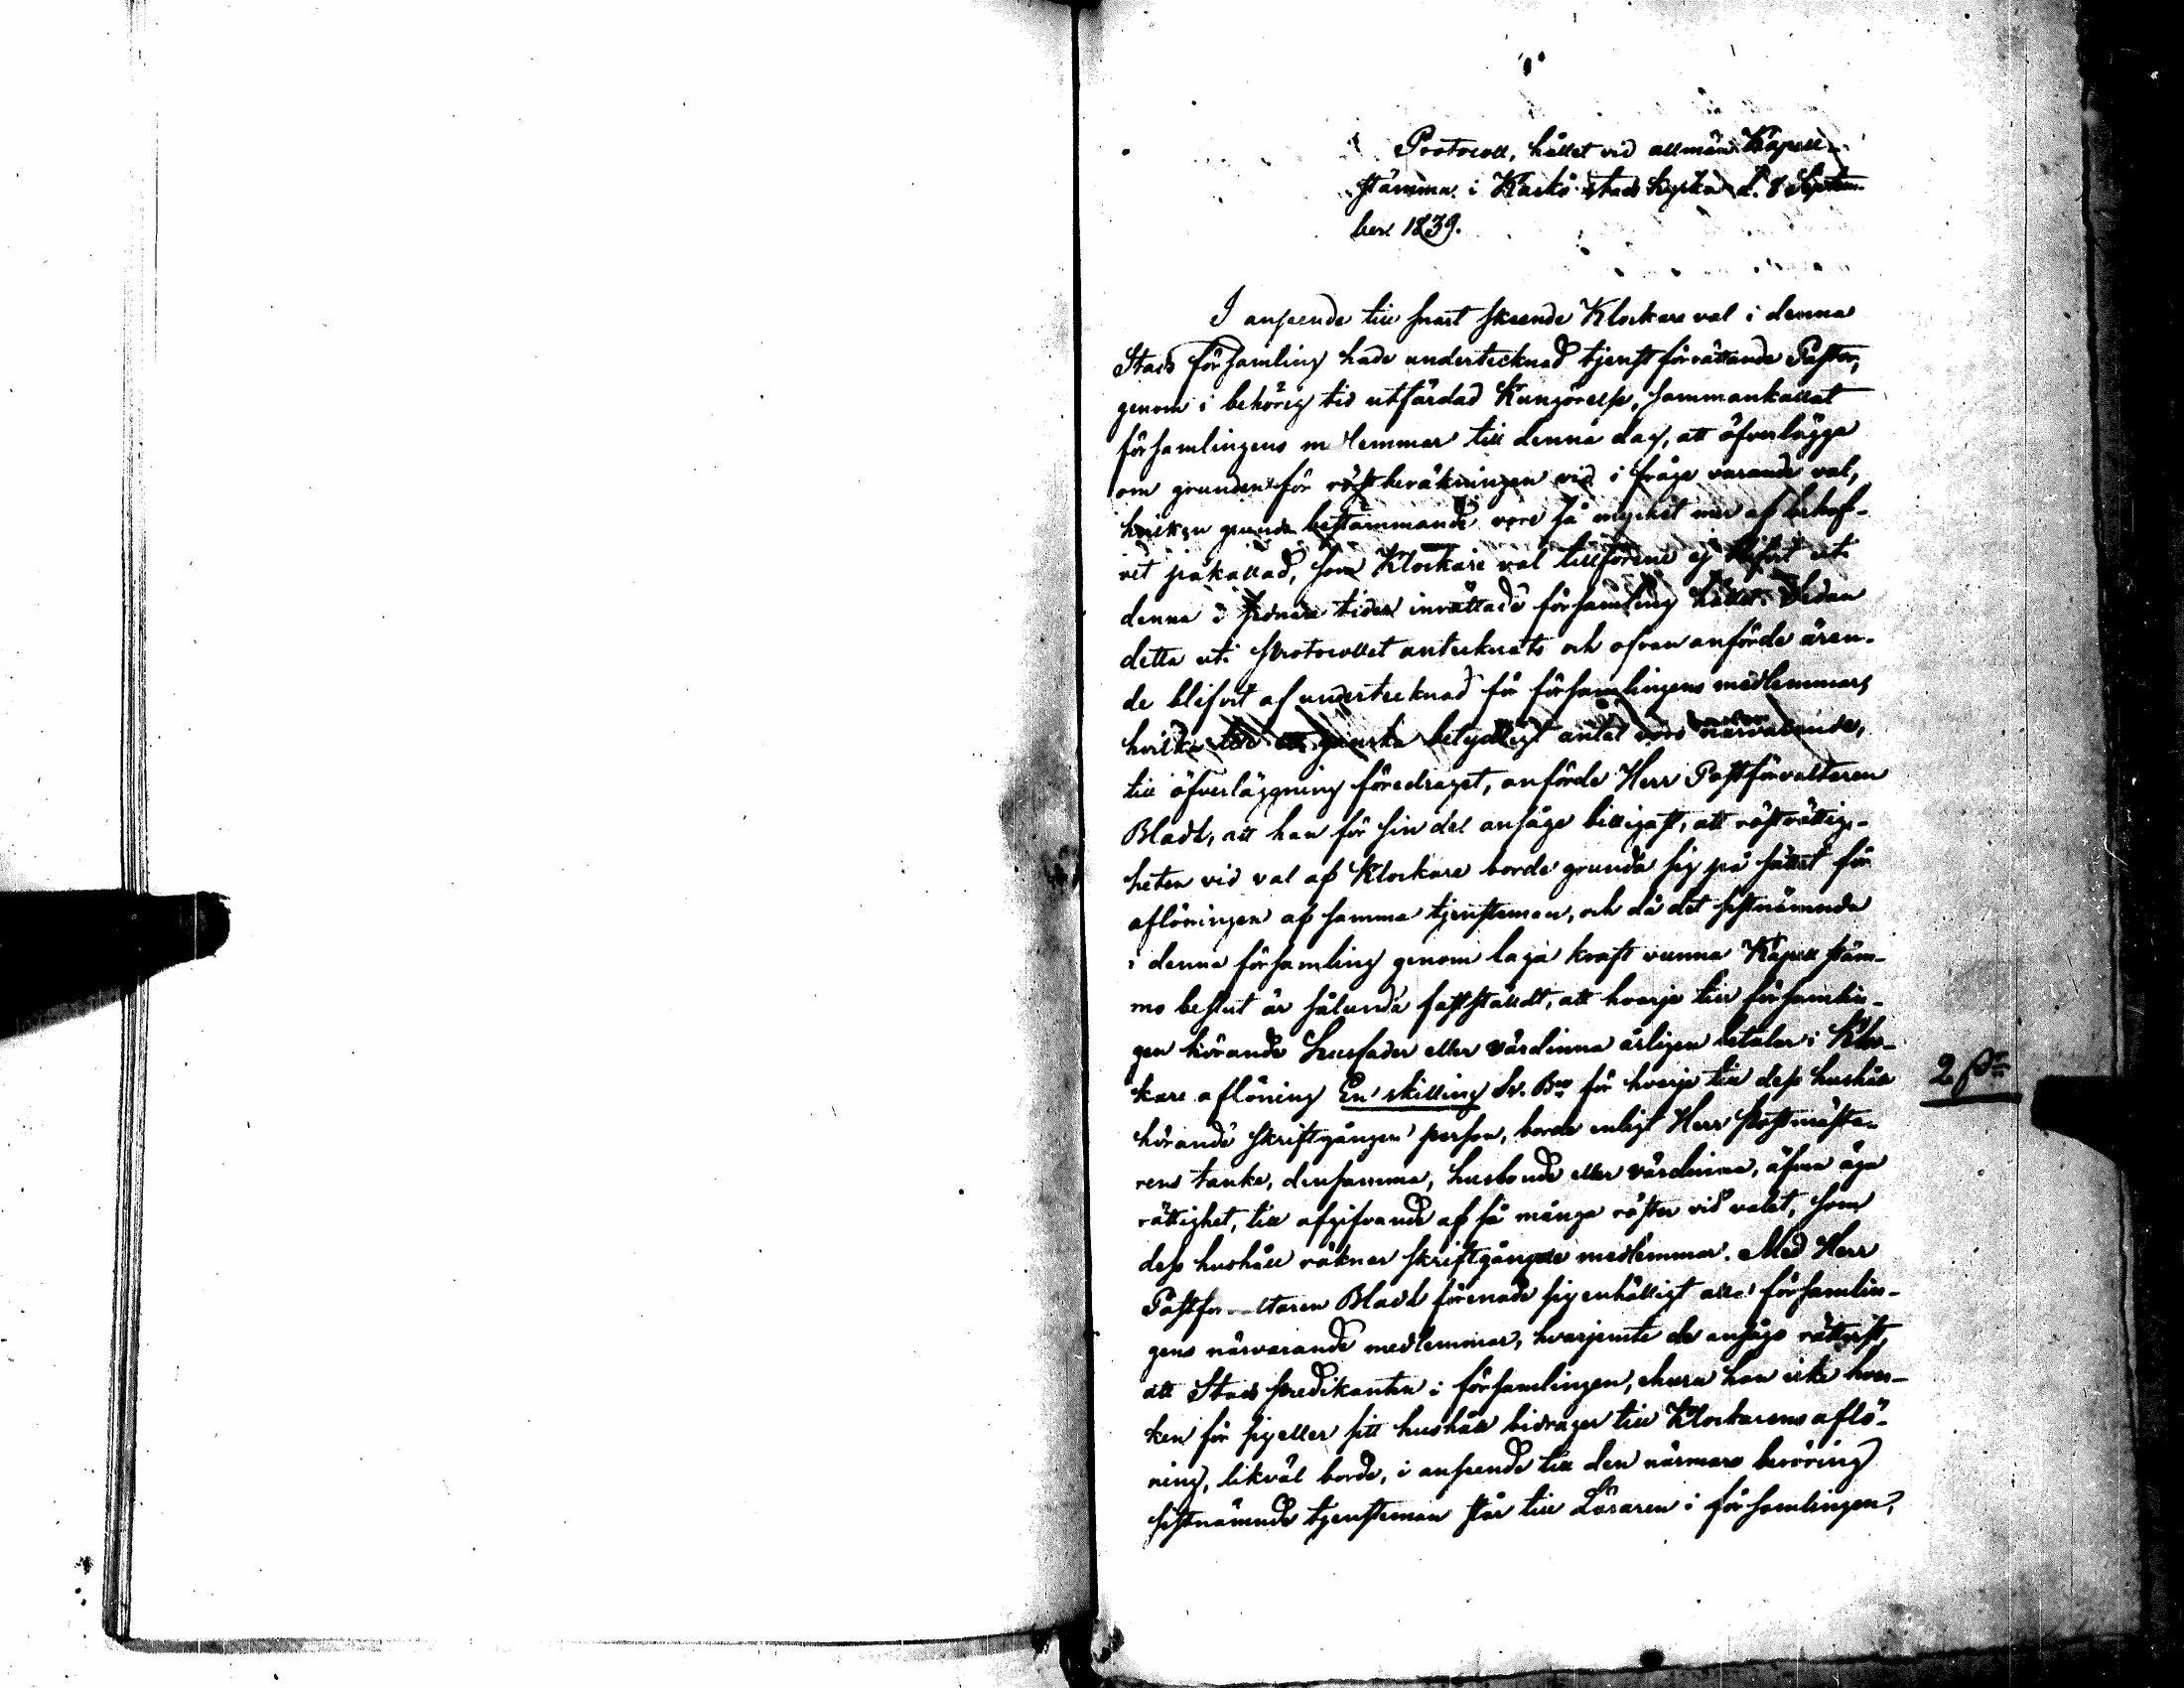 Protocoll, hållet vid allmän Kapell-
stämma i Kaskö stads kyrka d. 8 Septem-
ber 1839.
I anseende till snart skeende Klockare val i denna
Stads församling hade undertecknad tjenstförrättande Pastor,
genom i behörig tid utfärdad Kungörelse, sammankallat
församlingens m lemmar till denna dag, att öfverlägga
om grunden för röstberäkningen vid i fråga varande val,
hvilken grunds bestämmande vore så mycket mer af behof-
vet påkallad, som Klockare val tillförene ej blifvit uti
denna i sednare tider inrättade församling hållet. Sedan
detta uti Protocollet antecknats och ofvan anförde ären-
de blifvit af undertecknad för församlingens medlemmar,
hvilka till ganska betydligt antal voro närvarande,
till öfverläggning föredraget, anförde Herr Postförvaltaren
Bladh, att han för sin del ansåge billigast, att röströttig-
heten vid val af Klockare borde grunda sig på sättet för
aflöningen af samma tjensteman, och då det sistnämnda
i denna församling genom laga kraft vunna Kapell stäm-
mo beslut är sålunda fastställdt, att hvarje till församlin-
gen hörande husfader eller värdinna årligen betalar i Kloc-
kare aflöning En skilling Sv. Bco för hvarje till dess hushåll
hörande skriftgången person, borde enligt Herr Postmästa-
rens tanke, densamma, husbonde eller värdinna, äfven äga
rättighet, till afgifvande af så många röster vid valet, som
dess hushåll räknar skriftgångne medlemmar. Med Herr
Postfor ltaren Bladh förenade sig enhälligt alla församlin-
gens närvarande medlemmar, hvarjemte de ansågo rättvist,
att Stads predikanten i församlingen, ehuru han icke hvar-
ken för sig eller sitt hushåll bidrager till Klockarens aflö-
ning, likväl borde, i anseende till den närmare beröring
sistnämnde tjensteman står till Läraren i församlingen,